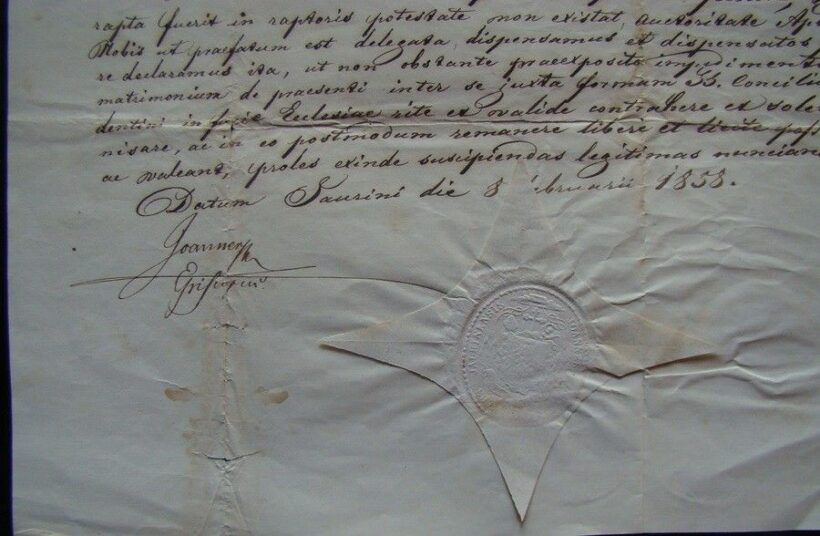 rapta fuerit in raptoris potestate non existat, auctoritate Ap
Nobis ut praefatum est delegata, dispensamus et dispensatos
re declaramus ita, ut non obstante praeexposito impedimento
matrimonium de praesenti inter se juxta formam SS. Concilii
dentini in facie Ecclesiae rite et valide contrahere et sole
nisare, ac in eo postmodum remanere libere et licite pos
ac valeant, proles exinde suscipiendas legitimas nuncian
Datum Jaurini die 8 bruarii 1858.
Joannes